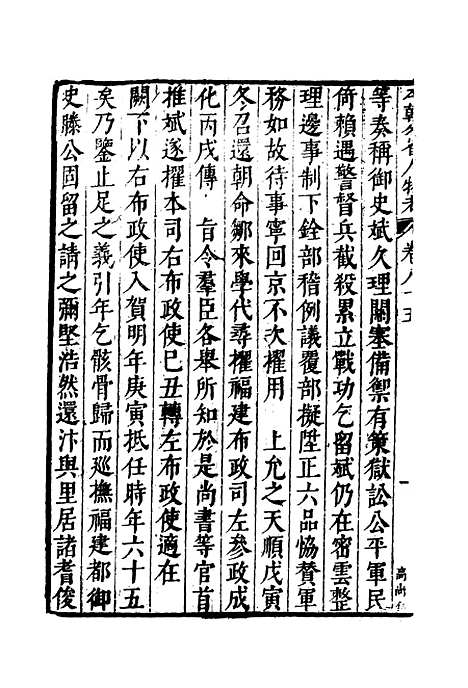 本朝分省人物考 卷八十五
等奏稱御史斌久理關塞備禦有策獄訟公平軍民
倚賴遇警督兵截殺累立戰功乞留斌仍在密雲整
理邊事制下銓部稽例議覆部擬陞正六品恊贊軍
務如故待事寧回京不次擢用　上允之天順戊寅
冬召還朝命鄒來學代尋擢福建布政司左參政成
化丙戌傳　旨令羣臣各舉所知於是尚書等官首
推斌遂擢本司右布政使巳丑轉左布政使適在
闕下以右布政使入賀明年庚寅抵任時年六十五
矣乃鑒止足之義引年乞骸骨歸而巡撫福建都御
史滕公固留之請之彌堅浩然還汴與里居諸耆俊